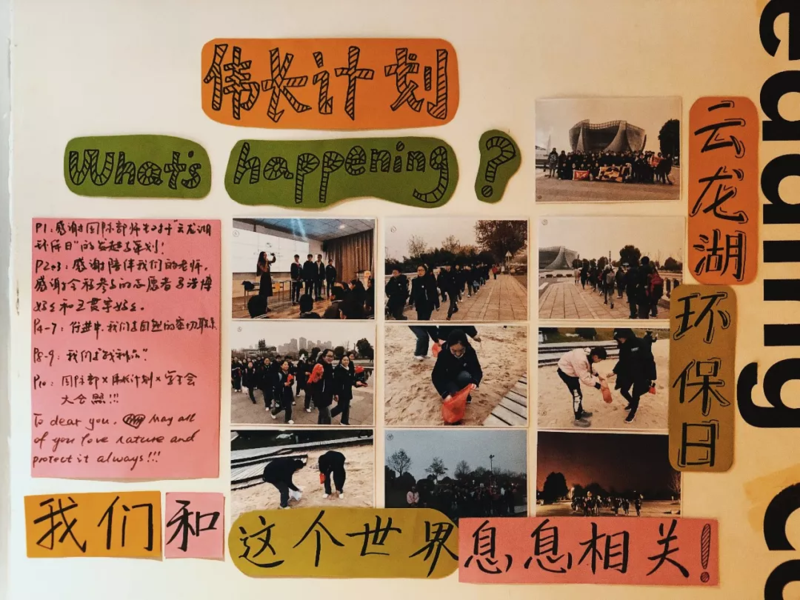 伟长计划
What's happening?
云龙湖
环保日
P1:感谢国际部师生对"云龙湖
环保日"的发起与策划!
P2-3:感谢陪伴我们的老师,
感谢全程参与的志愿者
女士和王贯宇女士。
P4-7:行进中,我们与自然的密切联系
P8-9:我们与"战利品"
P10:国际部×伟长计划×学生会
大合照!!!
To dear you, May all
of you love nature and
protect it always!!!
我们和这个世界息息相关!